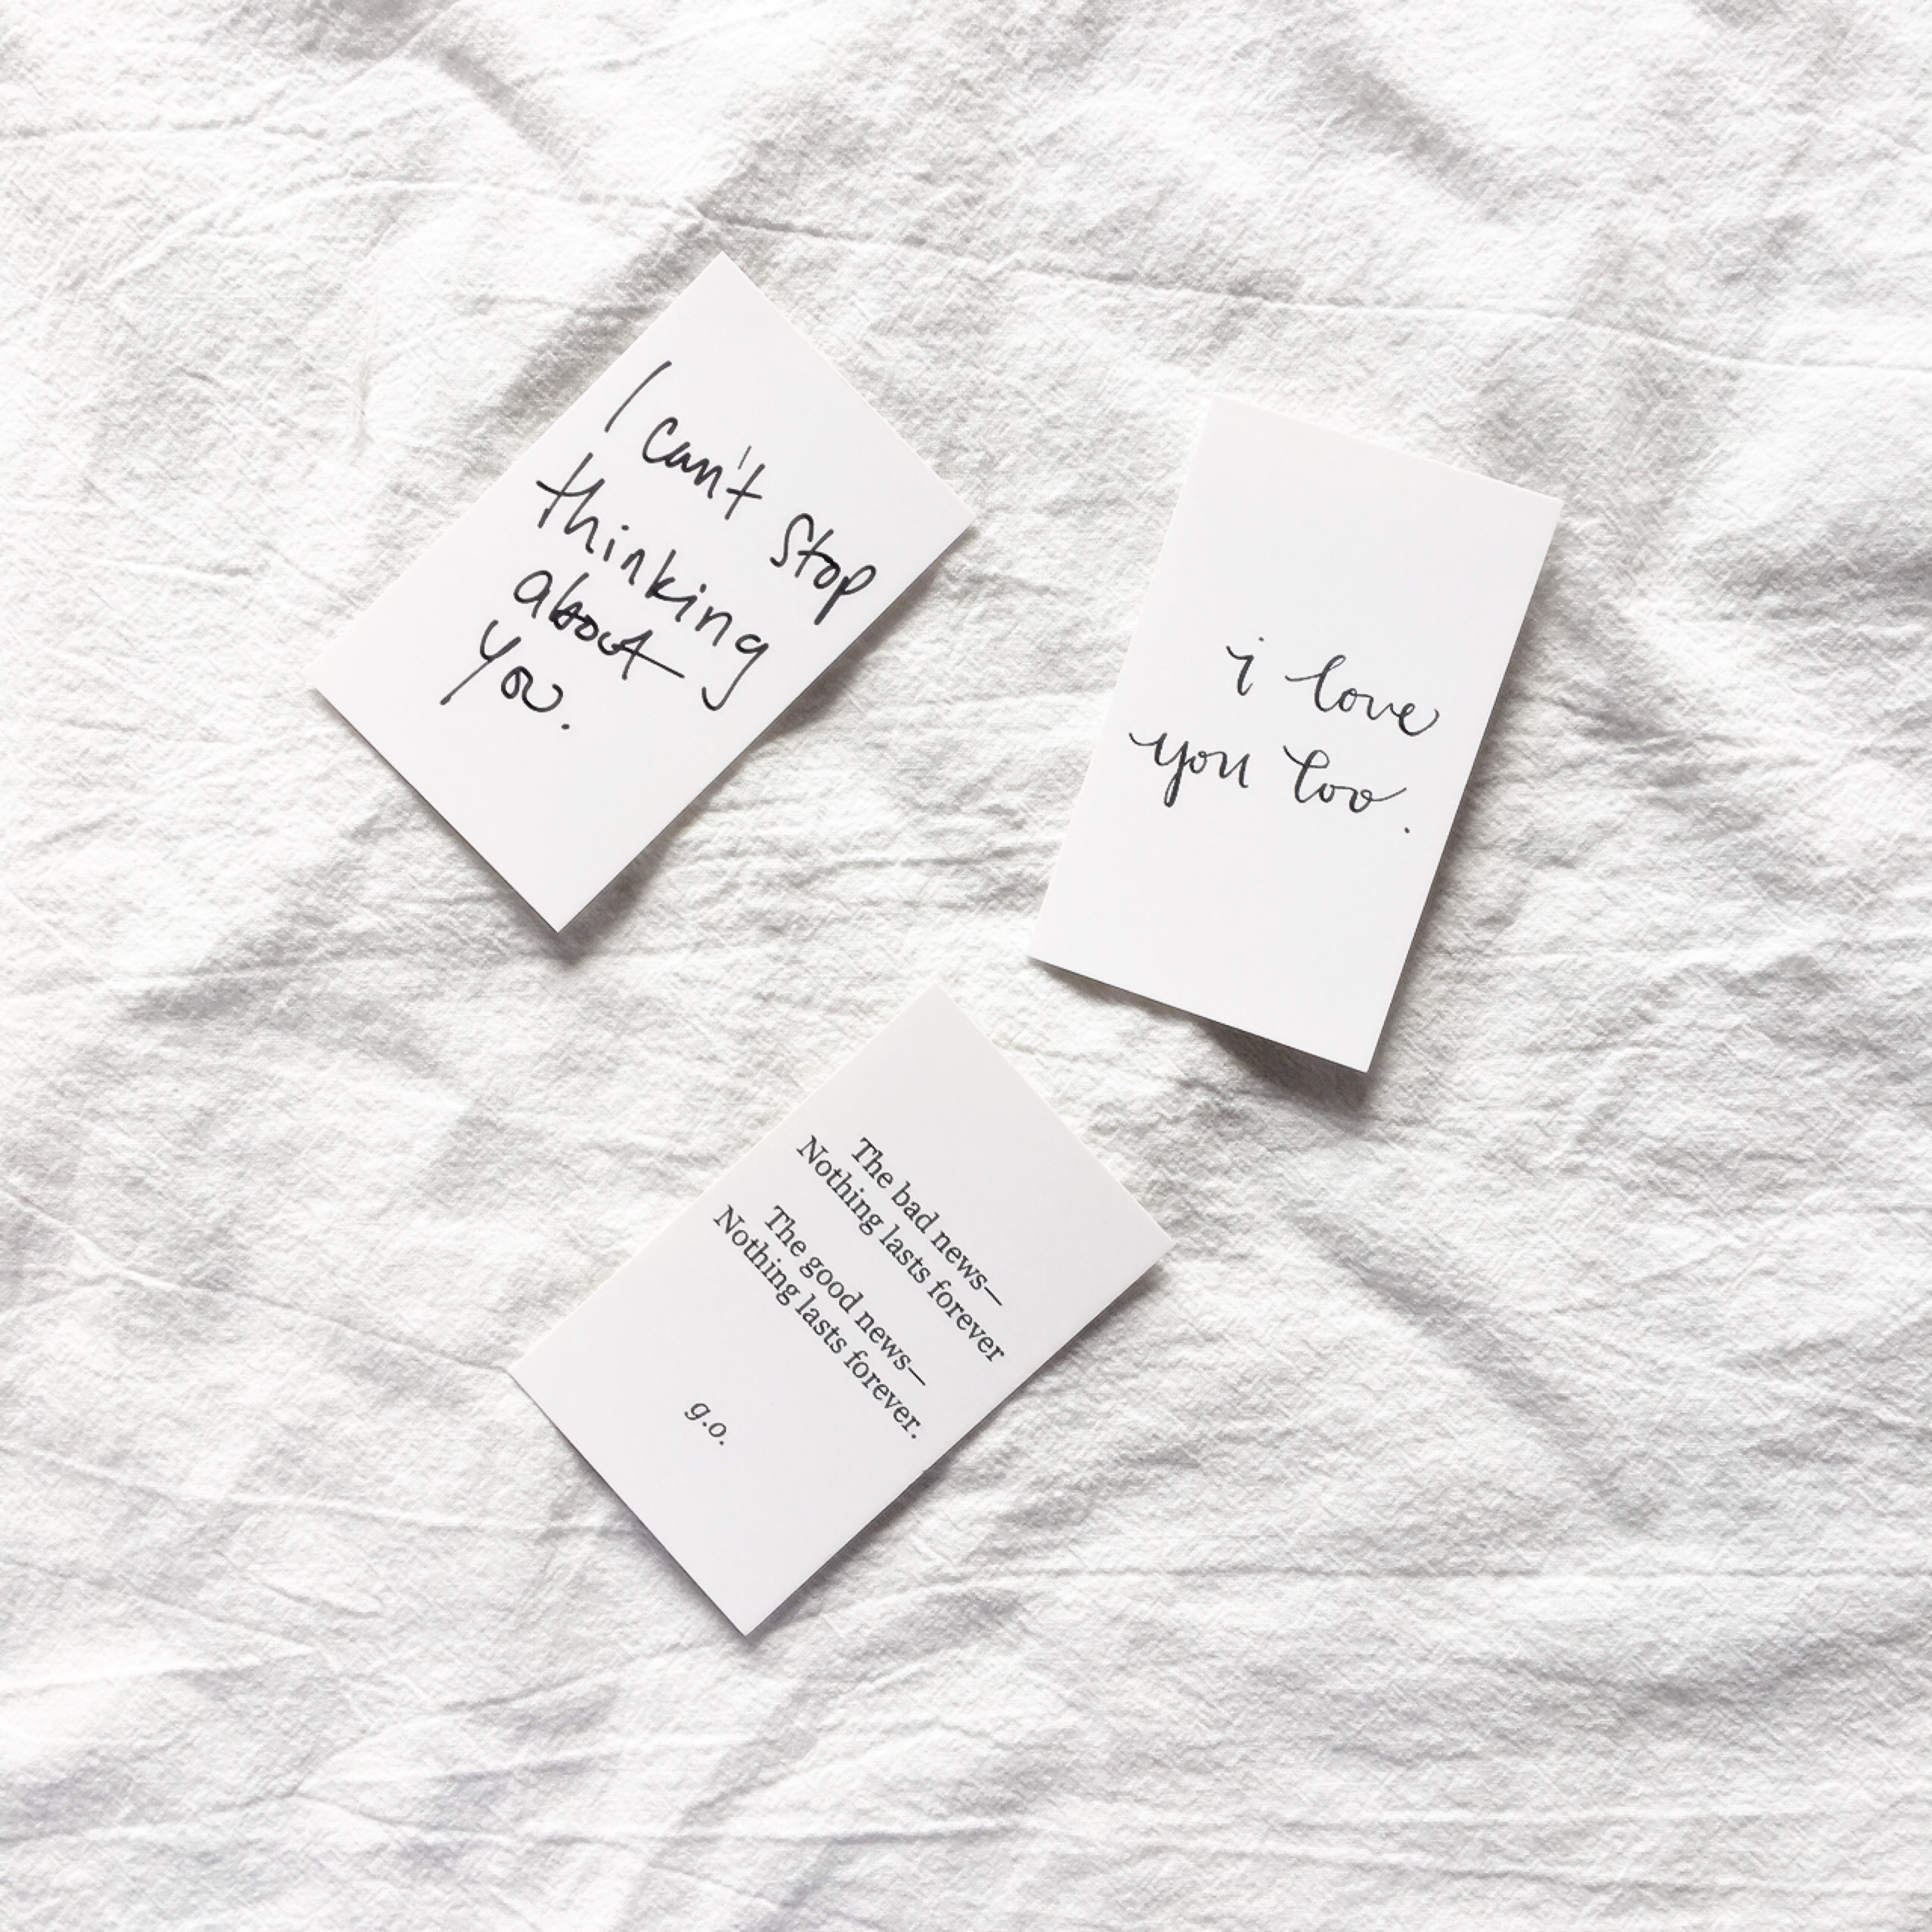 I can't stop
thinking
about
you.
i love
you too.
The bad news—
Nothing lasts forever
The good news—
Nothing lasts forever.
g.o.